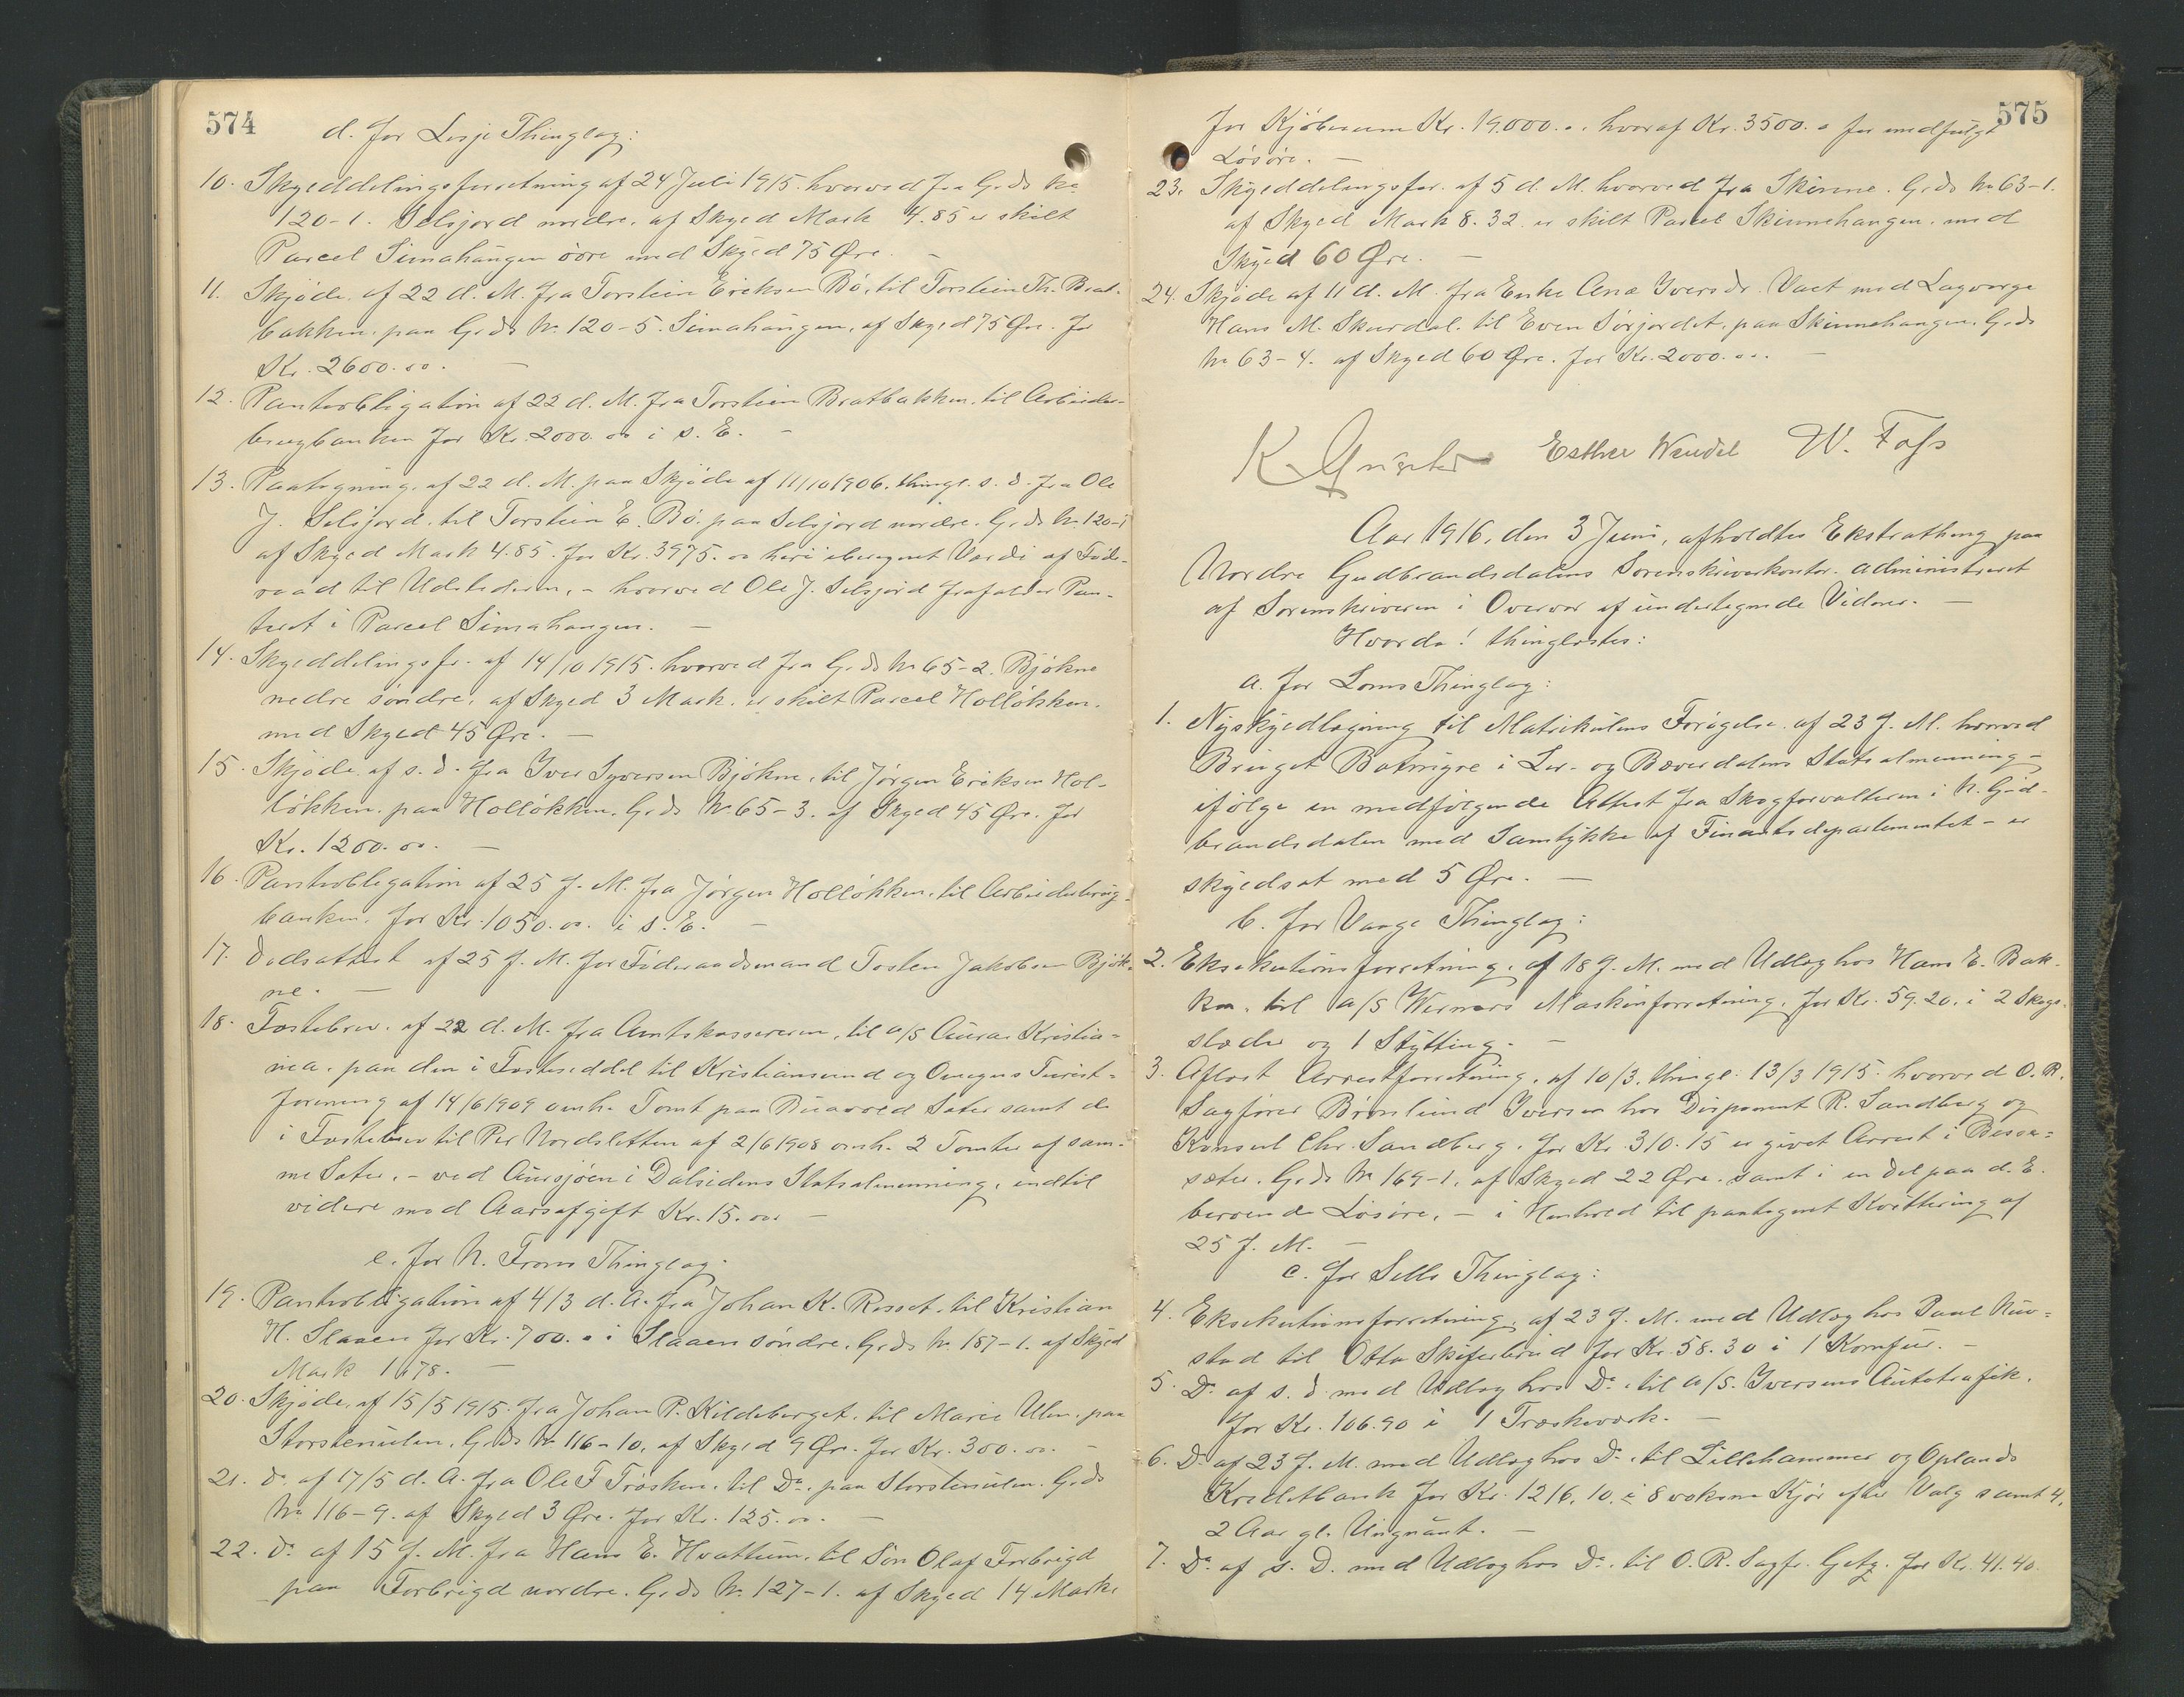 574
d. for Lesje Thinglag:
10. Skylddelingsforretning af 24 Juli 1915. hvorved fra G. ds No
120-1. Selsjord nordre. af Skyld Mark 4.85 er skilt
Parcel Simahaugen övre med Skyld 75 Øre. -
11. Skjöde. af 22 d. M. fra Torstein Eriksen Bö. til Torstein Th. Brat-
bakken. paa G. ds No. 120-5. Simahaugen. af Skyld 75 Øre. for
Kr. 2600.00. -
12. Panteobligation af 22 d. M. fra Torstein Bratbakken. til Arbeider-
brugbanken for Kr. 2000.00 i s. E. -
13. Paategning. af 22 d. M. paa Skjöde af 11/10 1906. thingl. s. D. fra Ole
J. Selsjord. til Torstein E. Bö. paa Selsjord nordre. G. ds No. 120-1
af Skyld Mark 4.85. for Kr. 3975.00 heri iberegnet Værdi af Föde-
raad til Udstederen. - hvorved Ole J. Selsjord frafalder Pan-
teret i Parcel Simahaugen. -
14. Skylddelingsfr. af 14/10 1915. hvorved fra G. ds No 65-2. Bjökne
nedre söndre. af Skyld 3 Mark. er skilt Parcel Hollökken.
med Skyld 45 Øre. -
15. Skjöde. af s. D. fra Iver Syversen Bjökne. til Jörgen Eriksen Hol-
lökken. paa Hollökken. G. ds No. 65-3. af Skyld 45 Øre. for
Kr. 1200.00. -
16. Panteobligation af 25 f. M. fra Jörgen Hollökken. til Arbeiderbrug-
banken. for Kr. 1050.00. i s. E. -
17. Dödsattest af 25 f. M. for Föderaadsmand Tosten Jakobsen Bjök-
ne. -
18. Festebrev. af 22 d. M. fra Amtskassereren. til A/S Aura. Kristia-
nia. paa den i Festeseddel til Kristiansund og Omegns Turist-
forening af 14/6 1909 omh. Tomt paa Sæter samt de
i Festebrev til Per Nordsletten af 2/6 1908 omh. 2 Tomter af sam-
me Sæter. - ved Aursjöen i Dalsidens Statsalmenning. indtil
videre mod Aarsafgift Kr. 15.00. -
e. for N. Frons Thinglag:
19. Panteobligation af 4/3 d. A. fra Johan K. Rosset. til Kristian
H. Slaaen for Kr. 700.00 i Slaaen söndre. G. ds No. 187-1. af Skyld
Mark 1.78. -
20. Skjöde. af 15/5 1915. fra Johan P. Kildeberget. til Marie Ulen. paa
Storstenulen. G. ds No 116-10. af Skyld 9 Øre. for Kr. 300.00. -
21. Do. af 17/5 d. A. fra Ole F Trösken. til Do. paa Storstenulen. G. ds
No 116-9. af Skyld 3 Øre. for Kr. 125.00. -
22. Do. af 15 f. M. fra Hans E. Hvattum. til Sön Olaf Forbrigd
paa Forbrigd nordre. G. ds No. 127-1. af Skyld 14 Mark.
575
for Kjöbesum Kr. 19.000.00. hvoraf Kr. 3500.00 for medfulgt
Lösöre. -
23. Skylddelingsfor. af 5 d. M. hvorved fra Skinne. G. ds No 63-1.
af Skyld Mark 8.32. er skilt Parcel Skinnehaugen. med
Skyld 60 Øre. -
24. Skjöde af 11 d. M. fra Enke Ane Iversdr. med Lagverge
Hans M. Skurdal. til Even Sörjordet. paa Skinnehaugen. G. ds
No 63-4. af Skyld 60 Øre. for Kr. 2000.00. -
Esther Wendel W. Foss
Aar 1916, den 3 Juni, afholdtes Ekstrathing paa
Nordre Gudbrandsdalens Sorenskriverkontor. administreret
af Sorenskriveren i Overvær af undertegnede Vidner. -
Hvorda! thinglæstes:
a. for Loms Thinglag:
1. Nyskyldlægning til Matrikulens Forögelse. af 23 f. M. hvorved
Bruget i Lær- og Bæverdalens Statsalmenning -
ifölge en medfölgende Attest fra Skogforvalteren i N. Gud-
brandsdalen med Samtykke af Finantsdepartementet - er
skyldsat med 5 Øre. -
b. for Vaage Thinglag:
2. Eksekutionsforretning. af 18 f. M. med Udlæg hos Hans E. Bak-
ken. til A/S Werners Maskinforretning. for Kr. 59.20. i 2 Skogs-
slæder og 1 Stytting. -
3. Aflæst Arrestforretning. af 10/3. thingl. 13/3 1915. hvorved O. R.
Sagförer Brönlund Iversen hos Disponent R. Sandberg og
Konsul Chr. Sandberg. for Kr. 310.15 er givet Arrest i
sæter. G. ds No 169-1. af Skyld 22 Øre. samt i en del paa d. E.
beroende Lösöre. - i Henhold til paategnet Kvittering af
25 f. M. -
c. for Sells Thinglag:
4. Eksekutionsforretning. af 23 f. M. med Udlæg hos Paul
stad til Otto Skiferbrud for Kr. 58.30 i 1 Komfur. -
5. Do. af s. D. med Udlæg hos Do. til A/S. Iversens Autotrafik.
for Kr. 106.90 i 1 Træskeværk. -
6. Do. af 23 f. M. med Udlæg hos Do. til Lillehammer og Oplands
Kreditbank for Kr. 1216.10. i 8 voksne Kjör efter Valg samt 4,
2 Aar gl. Ungnaut. -
7. Do. af s. D. med Udlæg hos Do. til O. R. Sagfr. Getz. for Kr. 41.40.